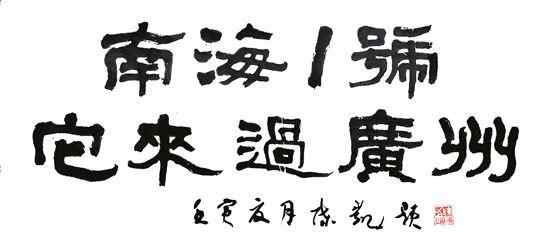 南海1號
它來過廣州
壬寅夏月凱題